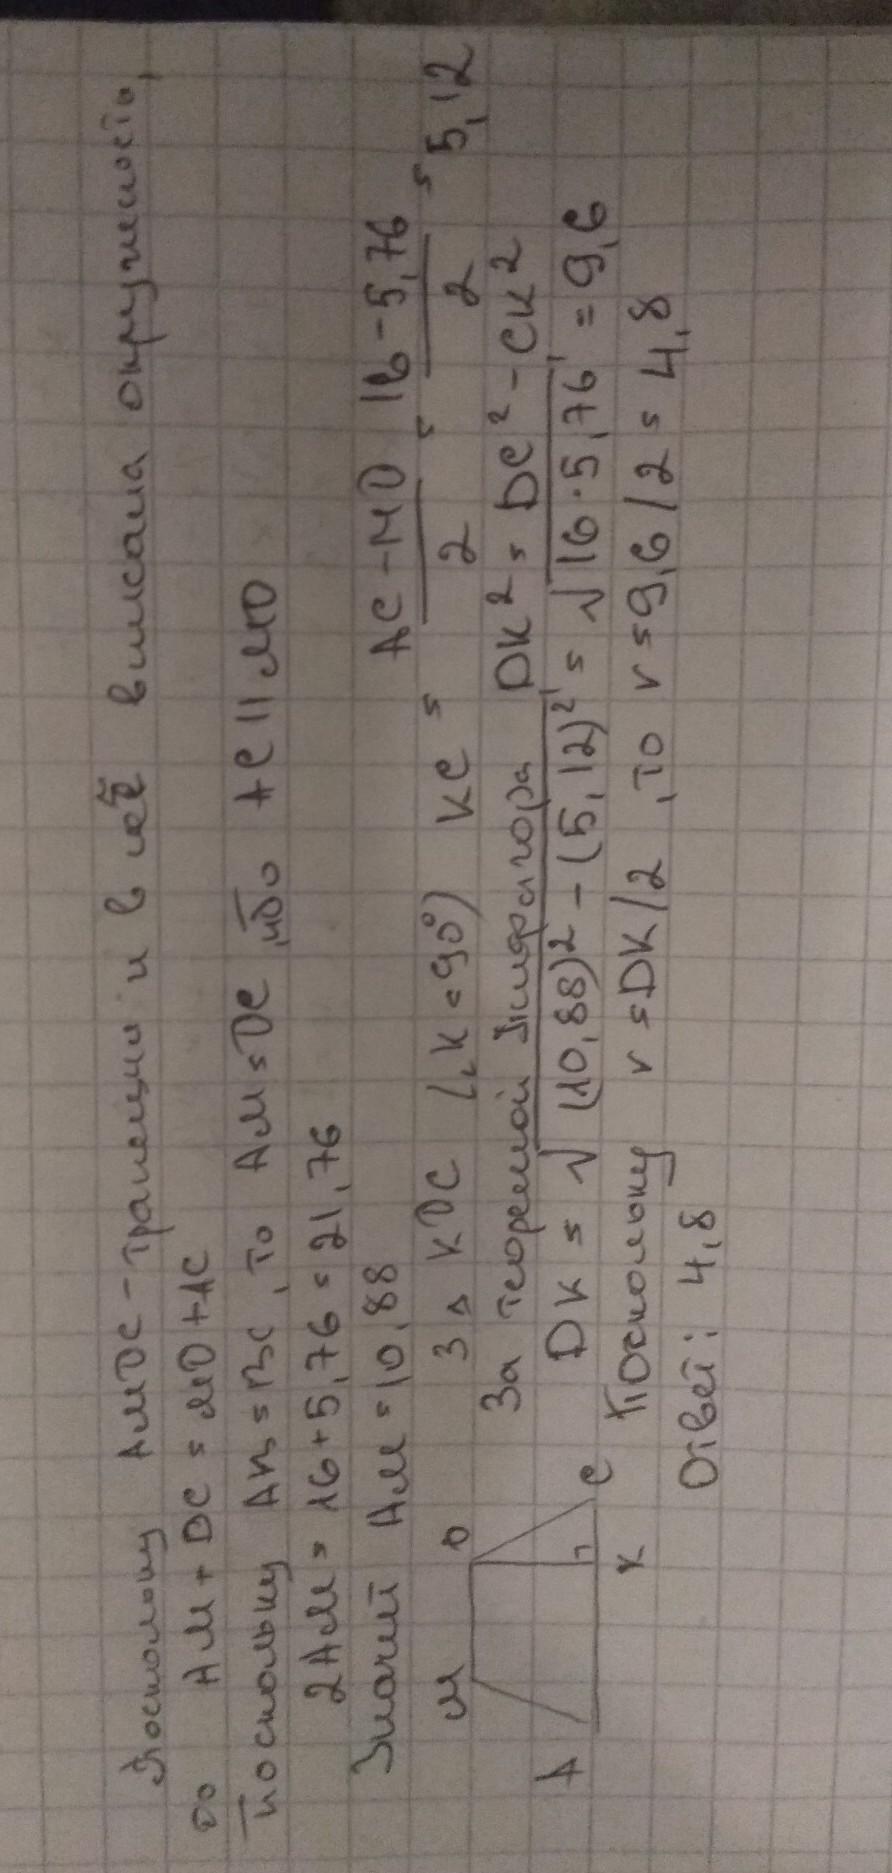 Поскольку АМDC - трапеция и в неё вписана окружность,
то АМ + DC = MD + AC
Поскольку АВ = ВС, то АМ = DC, ибо АС || MD
2АМ = 16 + 5,76 = 21,76
Значит АМ = 10,88
З Δ KDC (∠K = 90°) KC = (AC - MD)/2 = (16 - 5,76)/2 = 5,12
За теоремой Пифагора DK² = DC² - CK²
DK = √((10,88)² - (5,12)²) = √(16·5,76) = 9,6
Поскольку r = DK/2, то r = 9,6/2 = 4,8
Ответ: 4,8
M D
A K C